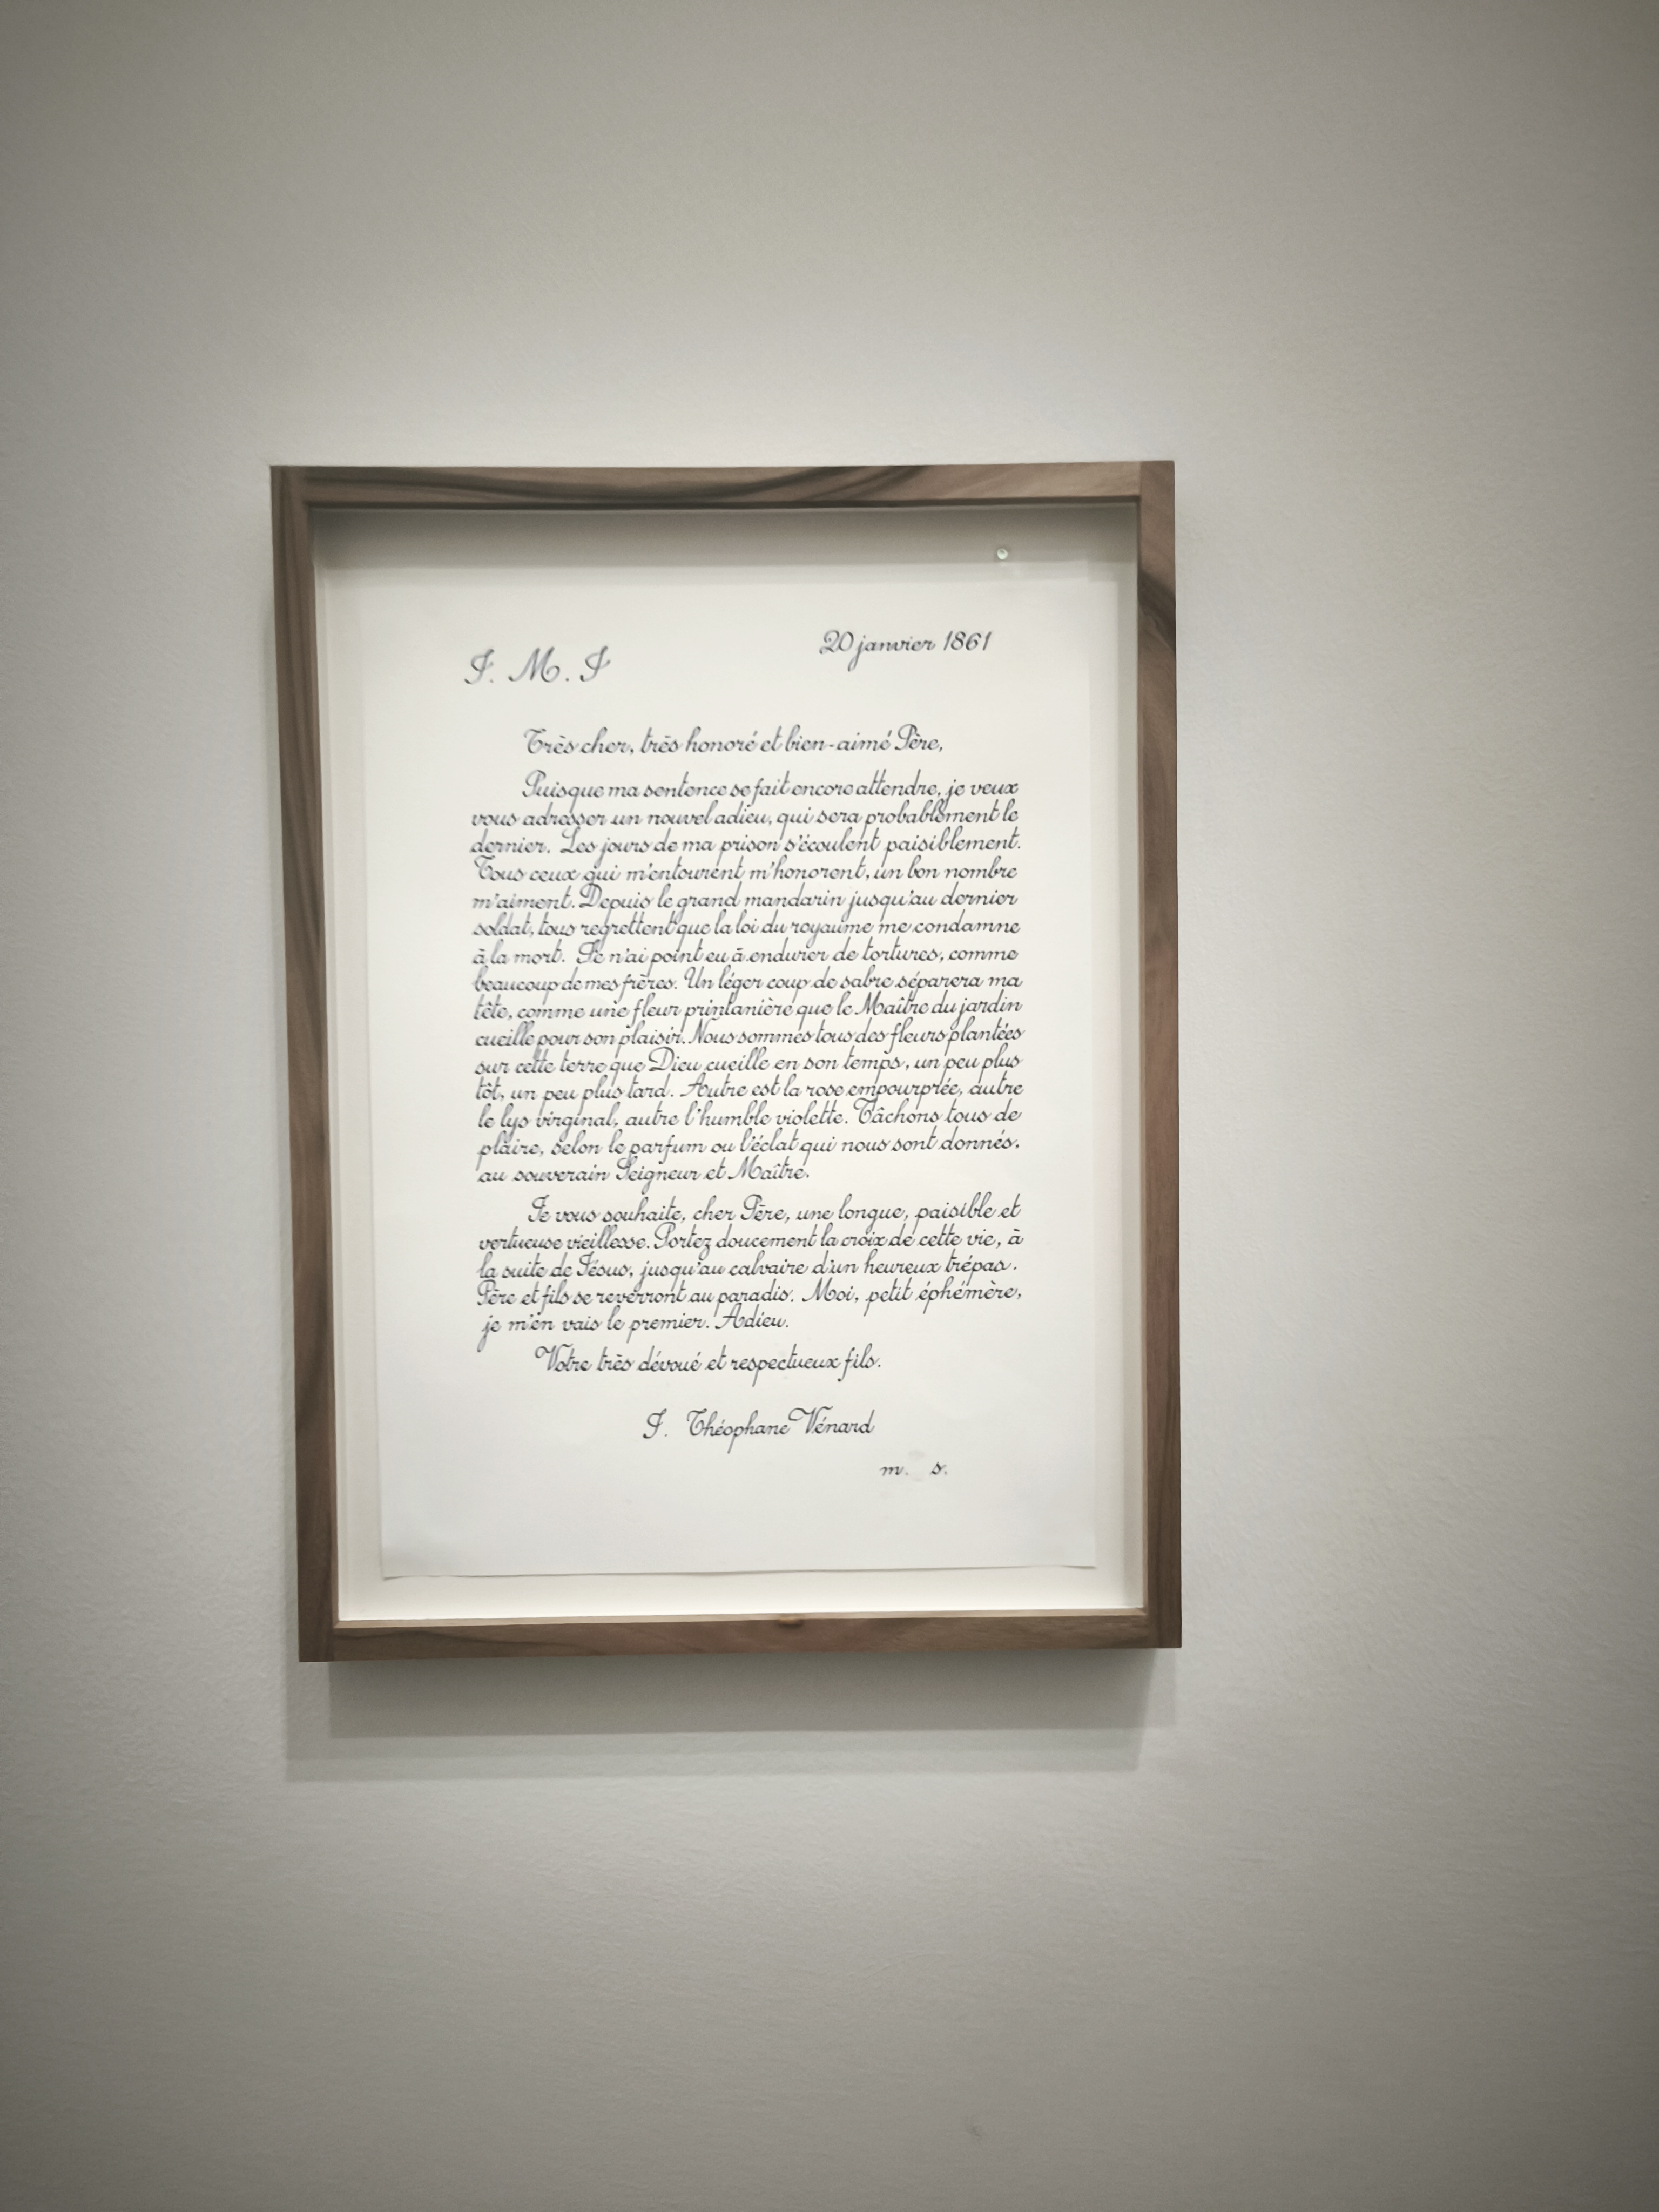 20 janvier 1861
J. M. J
Très cher, très honoré et bien-aimé Père,
Puisque ma sentence se fait encore attendre, je veux
vous adresser un nouvel adieu, qui sera probablement le
dernier. Les jours de ma prison s'écoulent paisiblement.
Tous ceux qui m'entourent m'honorent, un bon nombre
m'aiment. Depuis le grand mandarin jusqu'au dernier
soldat, tous regrettent que la loi du royaume me condamne
à la mort. Je n'ai point eu à endurer de tortures, comme
beaucoup de mes frères. Un léger coup de sabre séparera ma
tête, comme une fleur printanière que le Maître du jardin
cueille pour son plaisir. Nous sommes tous des fleurs plantées
sur cette terre que Dieu cueille en son temps, un peu plus
tôt, un peu plus tard. Autre est la rose empourprée, autre
le lys virginal, autre l'humble violette. Tâchons tous de
plaire, selon le parfum ou l'éclat qui nous sont donnés,
au souverain Seigneur et Maître.
Je vous souhaite, cher Père, une longue, paisible et
vertueuse vieillesse. Portez doucement la croix de cette vie, à
la suite de Jésus, jusqu'au calvaire d'un heureux trépas.
Père et fils se reverront au paradis. Moi, petit éphémère,
je m'en vais le premier. Adieu.
Votre très dévoué et respectueux fils.
J. Théophane Vénard
m. s.